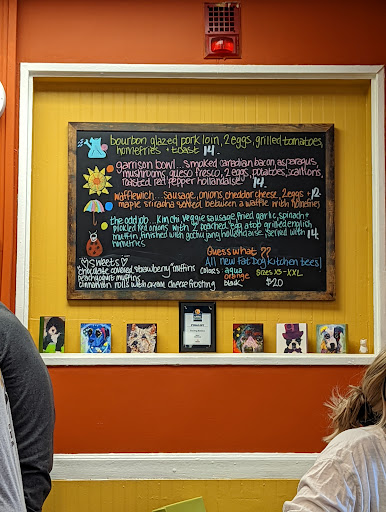 bourbon glazed pork loin, 2 eggs, grilled tomatoes,
homefries + toast 14.
garrison bowl... smoked canadian bacon, asparagus,
mushrooms, queso fresco, 2 eggs, potatoes, scallions,
roasted red pepper hollandaise 14.
wafflewich... sausage, onions, cheddar cheese, 2 eggs + 12
maple sriracha served between a waffle with homefries
the odd job... kimchi, veggie sausage, fried garlic, spinach +
pickled red onions with 2 poached eggs atop grilled english
muffin, finished with gochujang hollandaise. served with 14
homefries
Sweets
chocolate covered strawberry muffins
peach yogurt muffins
cinnamon rolls with cream cheese frosting
Guess what ??
All new Fat Dog Kitchen tees!
colors: aqua
orange
black
Sizes XS-XXL
$20